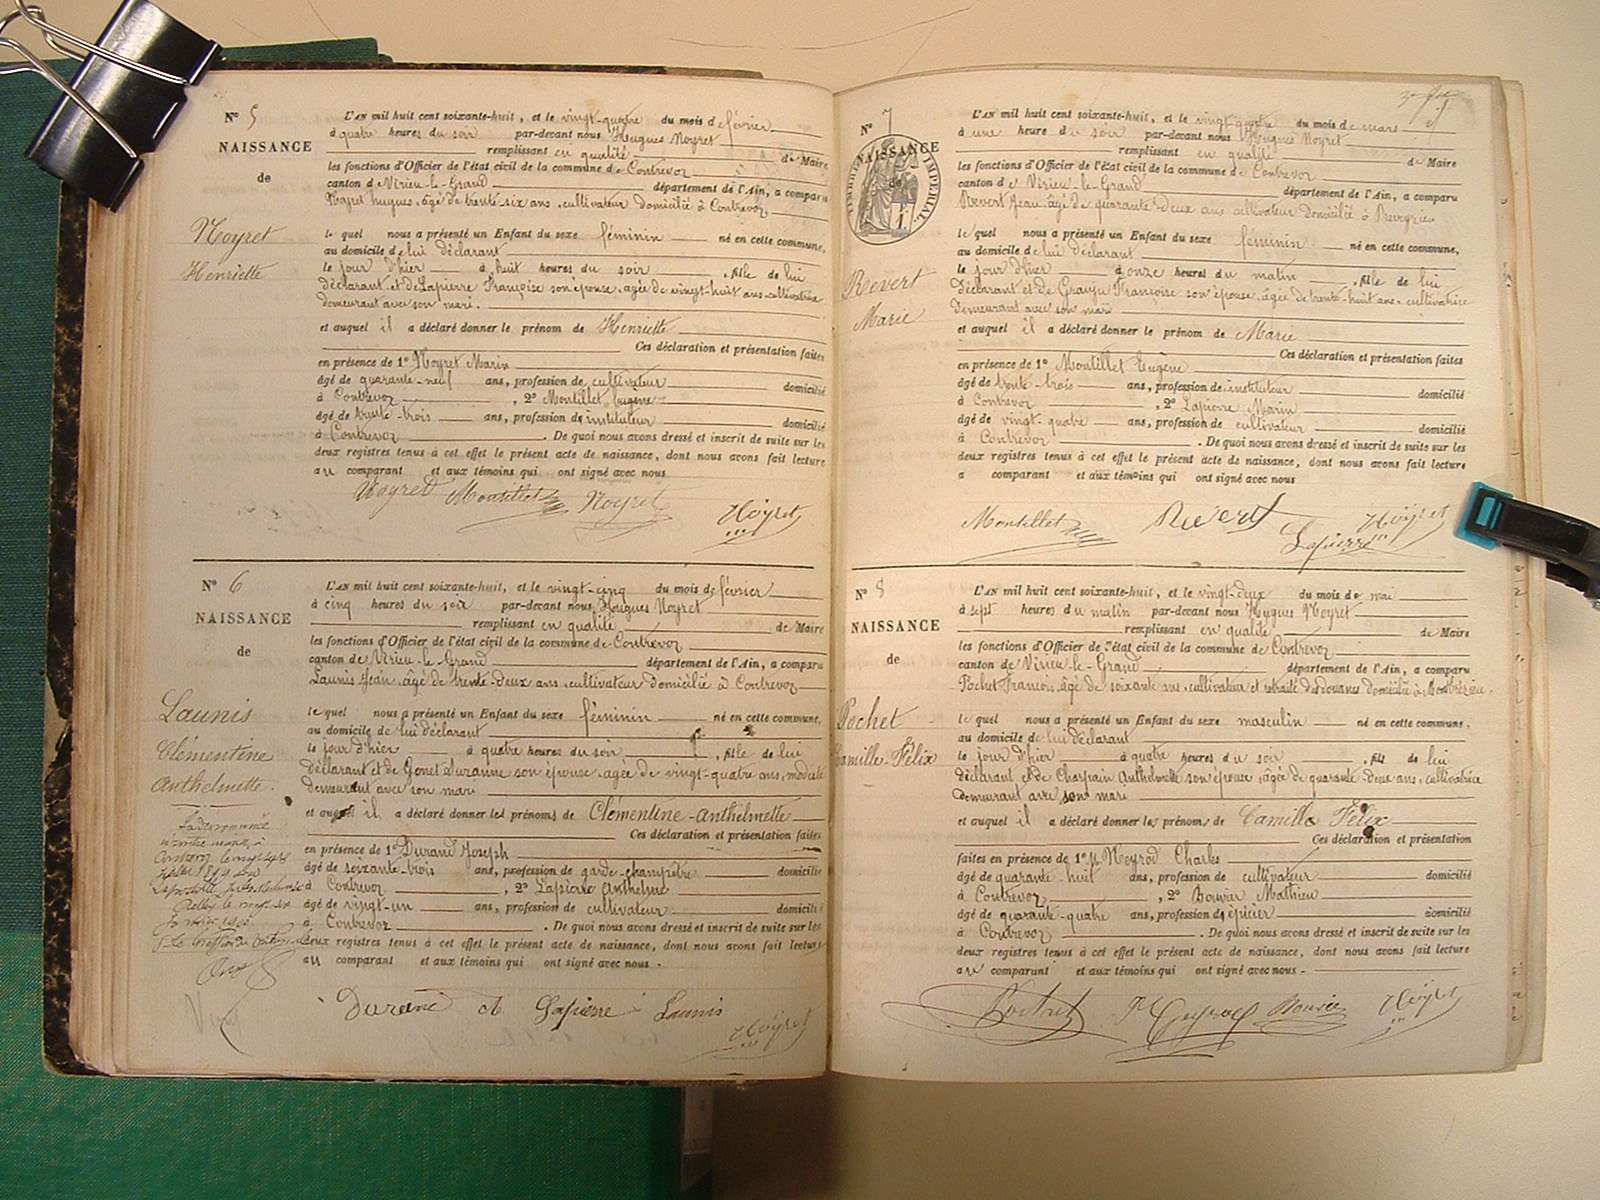 N° 5
NAISSANCE
de
Noyret
Henriette
L'AN mil huit cent soixante-huit, et le vingt-quatre du mois de février
à quatre heures du soir par-devant nous Hugues Noyret
remplissant en qualité de Maire
les fonctions d'Officier de l'état civil de la commune de Contrevoz
canton de Virieu-le-Grand département de l'Ain, a comparu
Noyret hugues, âgé de trente six ans, cultivateur domicilié à Contrevoz
le quel nous a présenté un Enfant du sexe féminin né en cette commune,
au domicile de lui déclarant
le jour d'hier à huit heures du soir, fille de lui
déclarant et de Lapierre Françoise son épouse, agée de vingt-huit ans, cultivatrice
demeurant avec son mari.
et auquel il a déclaré donner le prénom de Henriette
Ces déclaration et présentation faites
en présence de 1° Noyret Marin
âgé de quarante-neuf ans, profession de cultivateur domicilié
à Contrevoz, 2° Montillet Eugène
âgé de trente-trois ans, profession de instituteur domicilié
à Contrevoz. De quoi nous avons dressé et inscrit de suite sur les
deux registres tenus à cet effet le présent acte de naissance, dont nous avons fait lecture
au comparant et aux témoins qui ont signé avec nous
Noyret Montillet Noyret Noÿret
N° 6
NAISSANCE
de
Launis
Clémentine
Anthelmette.
L'AN mil huit cent soixante-huit, et le vingt-cinq du mois de février
à cinq heures du soir par-devant nous Hugues Noyret
remplissant en qualité de Maire
les fonctions d'Officier de l'état civil de la commune de Contrevoz
canton de Virieu-le-Grand département de l'Ain, a comparu
Launis Jean, âgé de trente-deux ans, cultivateur domicilié à Contrevoz
le quel nous a présenté un Enfant du sexe féminin né en cette commune,
au domicile de lui déclarant
le jour d'hier à quatre heures du soir, fille de lui
déclarant et de Gonet Suzanne son épouse, agée de vingt-quatre ans, modiste
demeurant avec son mari
et auquel il a déclaré donner les prénoms de Clémentine-Anthelmette
Ces déclaration et présentation faites
en présence de 1° Durand Joseph
âgé de soixante-trois ans, profession de garde-champêtre domicilié
à Contrevoz, 2° Lapierre Anthelme
âgé de vingt-un ans, profession de cultivateur domicilié
à Contrevoz. De quoi nous avons dressé et inscrit de suite sur les
deux registres tenus à cet effet le présent acte de naissance, dont nous avons fait lecture
au comparant et aux témoins qui ont signé avec nous.
Durand Lapierre Launis
Noÿret
N° 7
NAISSANCE
de
IMPÉRIAL
Revert
Marie
L'AN mil huit cent soixante-huit, et le vingt-quatre du mois de mars
à une heure du soir par-devant nous Hugues Noyret
remplissant en qualité de Maire
les fonctions d'Officier de l'état civil de la commune de Contrevoz
canton de Virieu-le-Grand département de l'Ain, a comparu
Revert Jean, âgé de quarante-deux ans cultivateur domicilié à
le quel nous a présenté un Enfant du sexe féminin né en cette commune,
au domicile de lui déclarant
le jour d'hier à onze heures du matin, fille de lui
déclarant et de Françoise son épouse, âgée de trente-huit ans, cultivatrice
demeurant avec son mari
et auquel il a déclaré donner le prénom de Marie
Ces déclaration et présentation faites
en présence de 1° Montillet Eugène
âgé de trente-trois ans, profession de instituteur domicilié
à Contrevoz, 2° Lapierre Marin
âgé de vingt-quatre ans, profession de cultivateur domicilié
à Contrevoz. De quoi nous avons dressé et inscrit de suite sur les
deux registres tenus à cet effet le présent acte de naissance, dont nous avons fait lecture
a comparant et aux témoins qui ont signé avec nous
Montillet Revert Lapierre Noÿret
N° 8
NAISSANCE
de
Pochet
Camille-Félix
L'AN mil huit cent soixante-huit, et le vingt-deux du mois de mai
à sept heures du matin par-devant nous Hugues Noyret
remplissant en qualité de Maire
les fonctions d'Officier de l'état civil de la commune de Contrevoz
canton de Virieu-le-Grand département de l'Ain, a comparu
Pochet François, âgé de soixante ans, cultivateur et retraité des douanes domicilié à
le quel nous a présenté un Enfant du sexe masculin né en cette commune,
au domicile de lui déclarant
le jour d'hier à quatre heures du soir, fils de lui
déclarant et de Anthelmette son épouse, âgée de quarante-deux ans, cultivatrice
demeurant avec son mari
et auquel il a déclaré donner les prénoms de Camille Félix
Ces déclaration et présentation
faites en présence de 1° Neyrod Charles
âgé de quarante-huit ans, profession de cultivateur domicilié
à Contrevoz, 2° Bouvier Mathieu
âgé de quarante-quatre ans, profession de épicier domicilié
à Contrevoz. De quoi nous avons dressé et inscrit de suite sur les
deux registres tenus à cet effet le présent acte de naissance, dont nous avons fait lecture
au comparant et aux témoins qui ont signé avec nous.
Pochet Neyrod Bouvier Noÿret